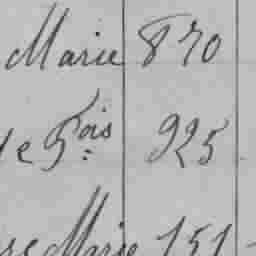 Marie 870
de 5ois 925
Marie 151